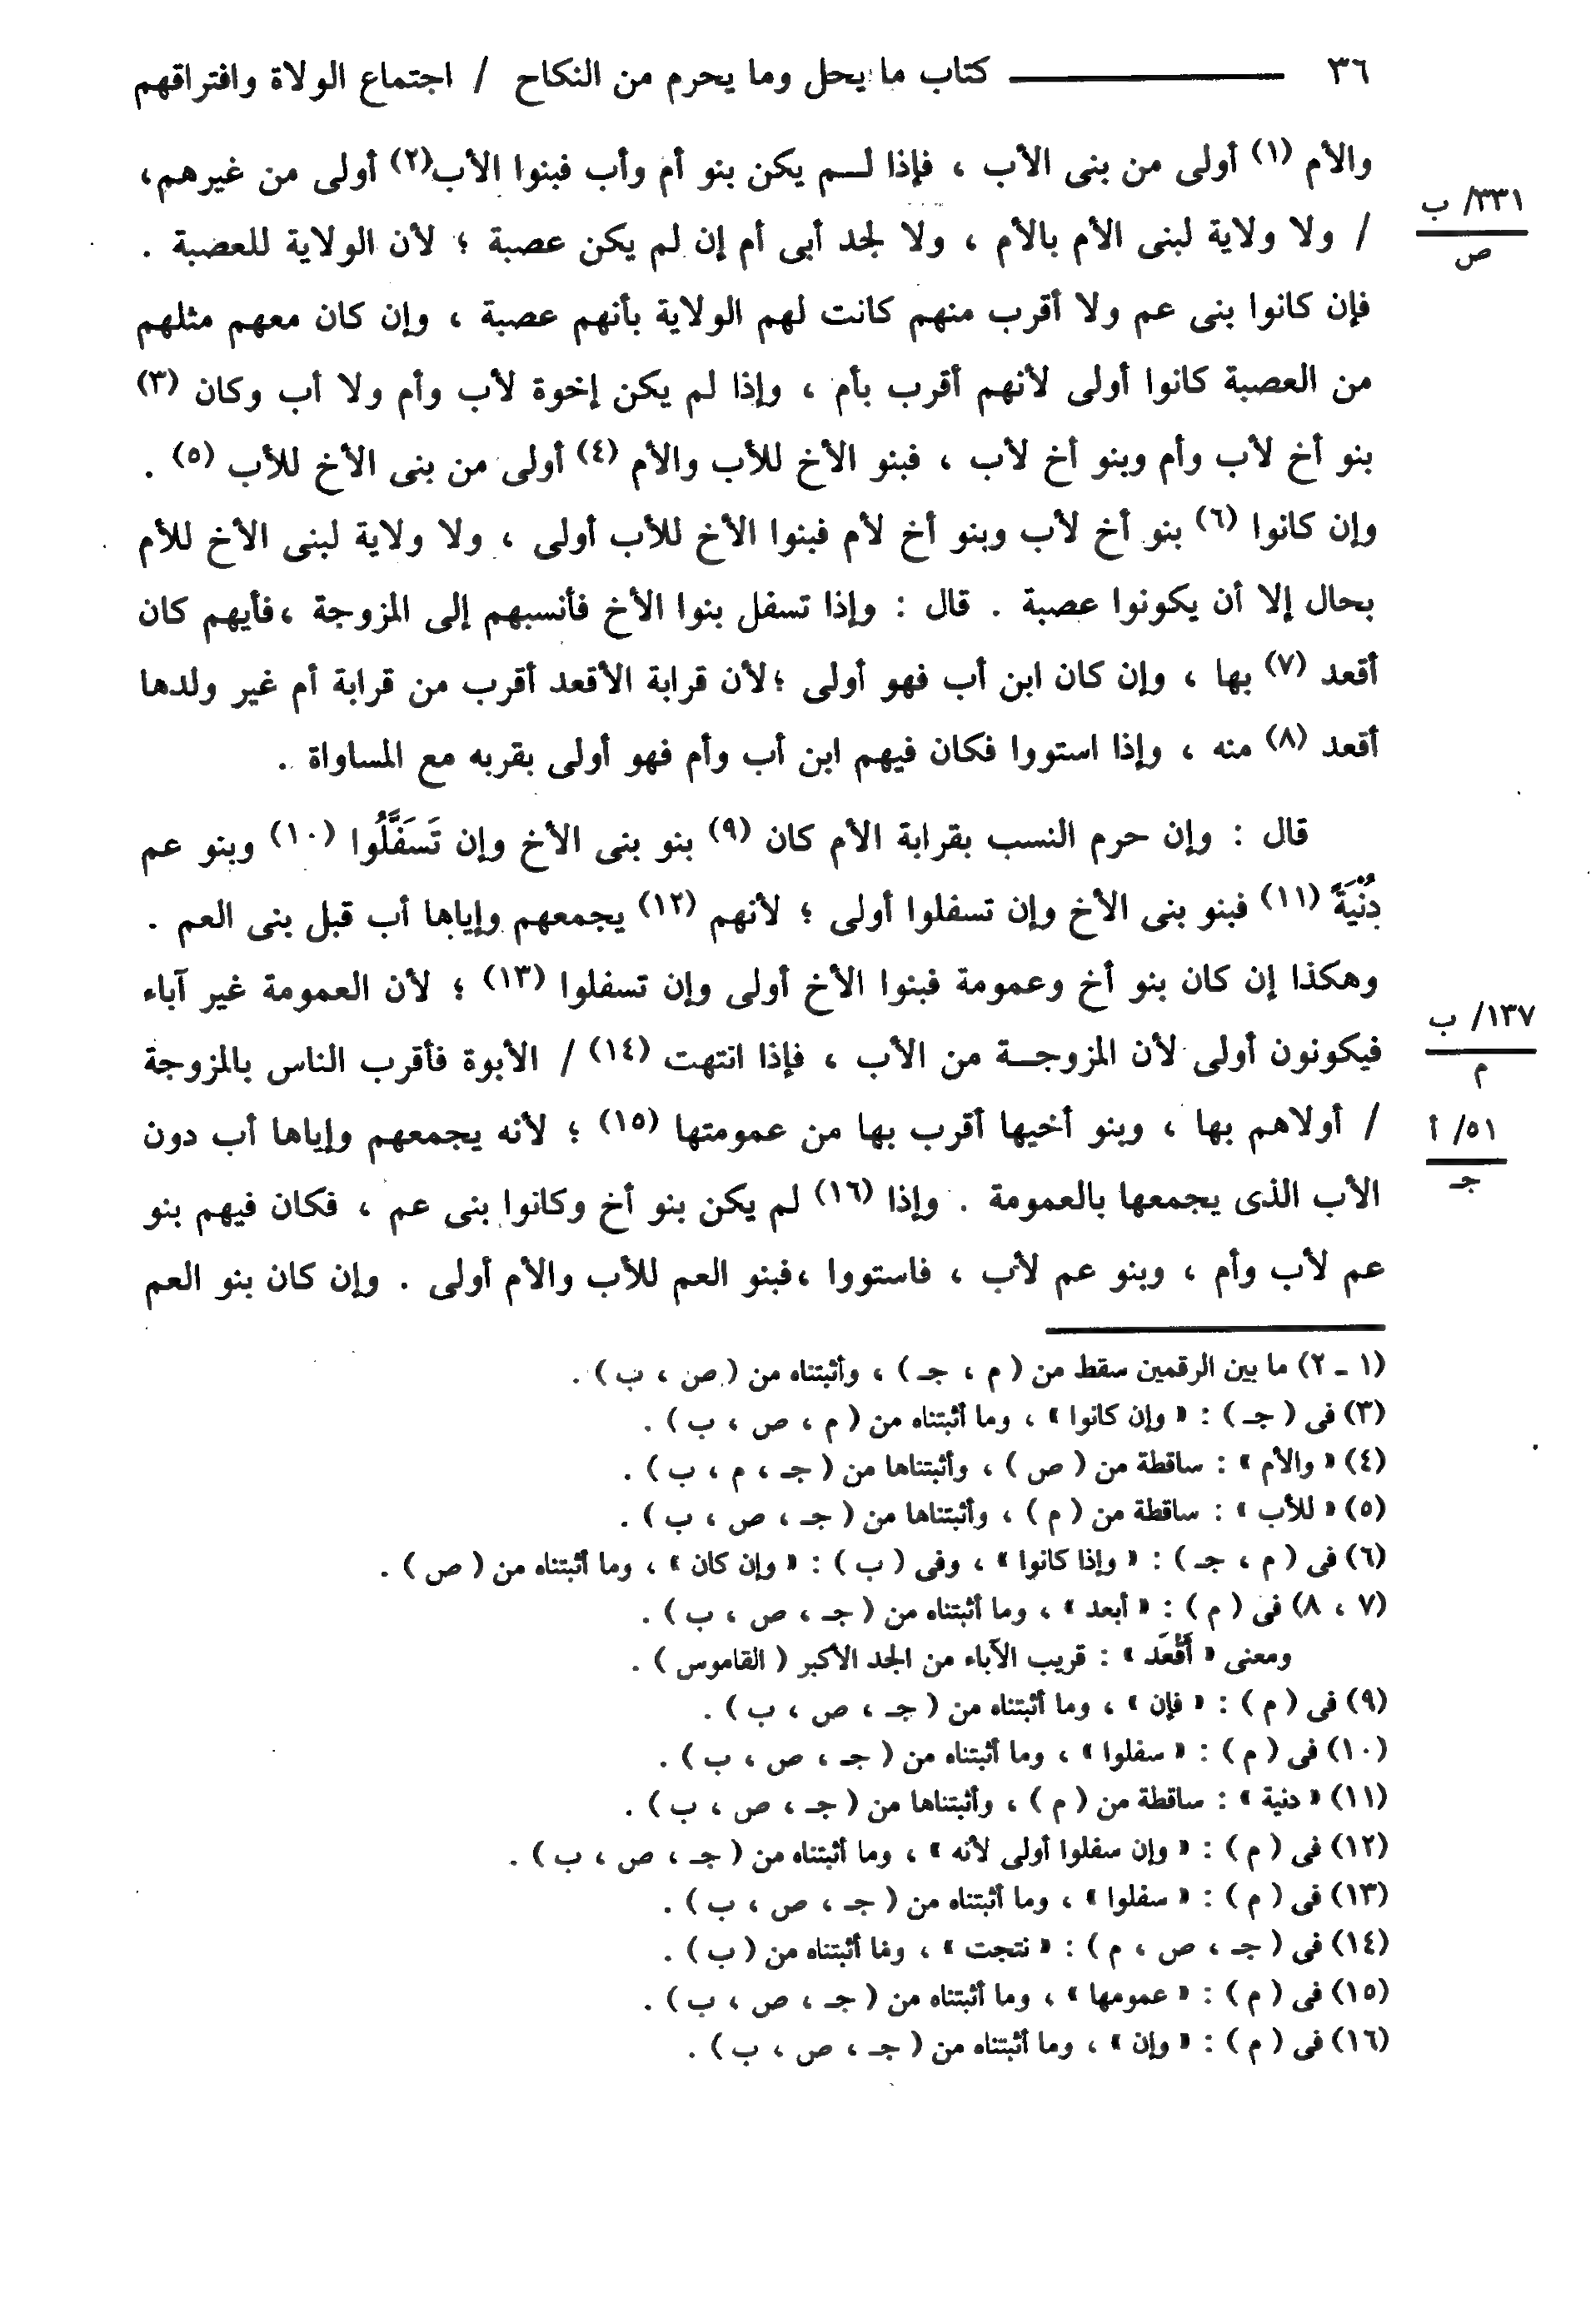 ٣٦ ــــــــ كتاب ما يحل وما يحرم من النكاح / اجتماع الولاة وافتراقهم
والأم (١) أولى من بنى الأب ، فإذا لـــم يكن بنو أم وأب فبنوا الأب(٢) أولى من غيرهم،
٣٣١/ ب
ص
/ ولا ولاية لبنى الأم بالأم ، ولا لجد أبى أم إن لم يكن عصبة ؛ لأن الولاية للعصبة .
فإن كانوا بنى عم ولا أقرب منهم كانت لهم الولاية بأنهم عصبة ، وإن كان معهم مثلهم
من العصبة كانوا أولى لأنهم أقرب بأم ، وإذا لم يكن إخوة لأب وأم ولا أب وكان (٣)
بنو أخ لأب وأم وبنو أخ لأب ، فبنو الأخ للأب والأم (٤) أولى من بنى الأخ للأب (٥) .
وإن كانوا (٦) بنو أخ لأب وبنو أخ لأم فبنوا الأخ للأب أولى ، ولا ولاية لبنى الأخ للأم
بحال إلا أن يكونوا عصبة . قال : وإذا تسفل بنوا الأخ فأنسبهم إلى المزوجة ،فأيهم كان
أقعد (٧) بها ، وإن كان ابن أب فهو أولى ؛لأن قرابة الأقعد أقرب من قرابة أم غير ولدها
أقعد (٨) منه ، وإذا استووا فكان فيهم ابن أب وأم فهو أولى بقربه مع المساواة .
قال : وإن حرم النسب بقرابة الأم كان (٩) بنو بنى الأخ وإن تَسَفَّلُوا (١٠) وبنو عم
دِنْيَةً (١١) فبنو بنى الأخ وإن تسفلوا أولى ؛ لأنهم (١٢) يجمعهم وإياها أب قبل بنى العم .
وهكذا إن كان بنو أخ وعمومة فبنوا الأخ أولى وإن تسفلوا (١٣) ؛ لأن العمومة غير آباء
١٣٧/ ب
م
فيكونون أولى لأن المزوجـــة من الأب ، فإذا انتهت (١٤) / الأبوة فأقرب الناس بالمزوجة
٥١/ أ
جـ
/ أولاهم بها ، وبنو أخيها أقرب بها من عمومتها (١٥) ؛ لأنه يجمعهم وإياها أب دون
الأب الذى يجمعها بالعمومة . وإذا (١٦) لم يكن بنو أخ وكانوا بنى عم ، فكان فيهم بنو
عم لأب وأم ، وبنو عم لأب ، فاستووا ،فبنو العم للأب والأم أولى . وإن كان بنو العم
(١ ـ ٢) ما بين الرقمين سقط من ( م ، جـ ) ، وأثبتناه من ( ص ، ب ) .
(٣) فى ( جـ ) : « وإن كانوا » ، وما أثبتناه من ( م ، ص ، ب ) .
(٤) « والأم » : ساقطة من ( ص ) ، وأثبتناها من ( جـ ، م ، ب ) .
(٥) « للأب » : ساقطة من ( م ) ، وأثبتناها من ( جـ ، ص ، ب ) .
(٦) فى ( م ، جـ ) : « وإذا كانوا » ، وفى ( ب ) : « وإن كان » ، وما أثبتناه من ( ص ) .
(٧ ، ٨) فى ( م ) : « أبعد » ، وما أثبتناه من ( جـ ، ص ، ب ) .
ومعنى « أَقْعَد » : قريب الآباء من الجد الأكبر ( القاموس ) .
(٩) فى ( م ) : « فإن » ، وما أثبتناه من ( جـ ، ص ، ب ) .
(١٠) فى ( م ) : « سفلوا » ، وما أثبتناه من ( جـ ، ص ، ب ) .
(١١) « دنية » : ساقطة من ( م ) ، وأثبتناها من ( جـ ، ص ، ب ) .
(١٢) فى ( م ) : « وإن سفلوا أولى لأنه » ، وما أثبتناه من ( جـ ، ص ، ب ) .
(١٣) فى ( م ) : « سفلوا » ، وما أثبتناه من ( جـ ، ص ، ب ) .
(١٤) فى ( جـ ، ص ، م ) : « نتجت » ، وما أثبتناه من ( ب ) .
(١٥) فى ( م ) : « عمومها » ، وما أثبتناه من ( جـ ، ص ، ب ) .
(١٦) فى ( م ) : « وإن » ، وما أثبتناه من ( جـ ، ص ، ب ) .